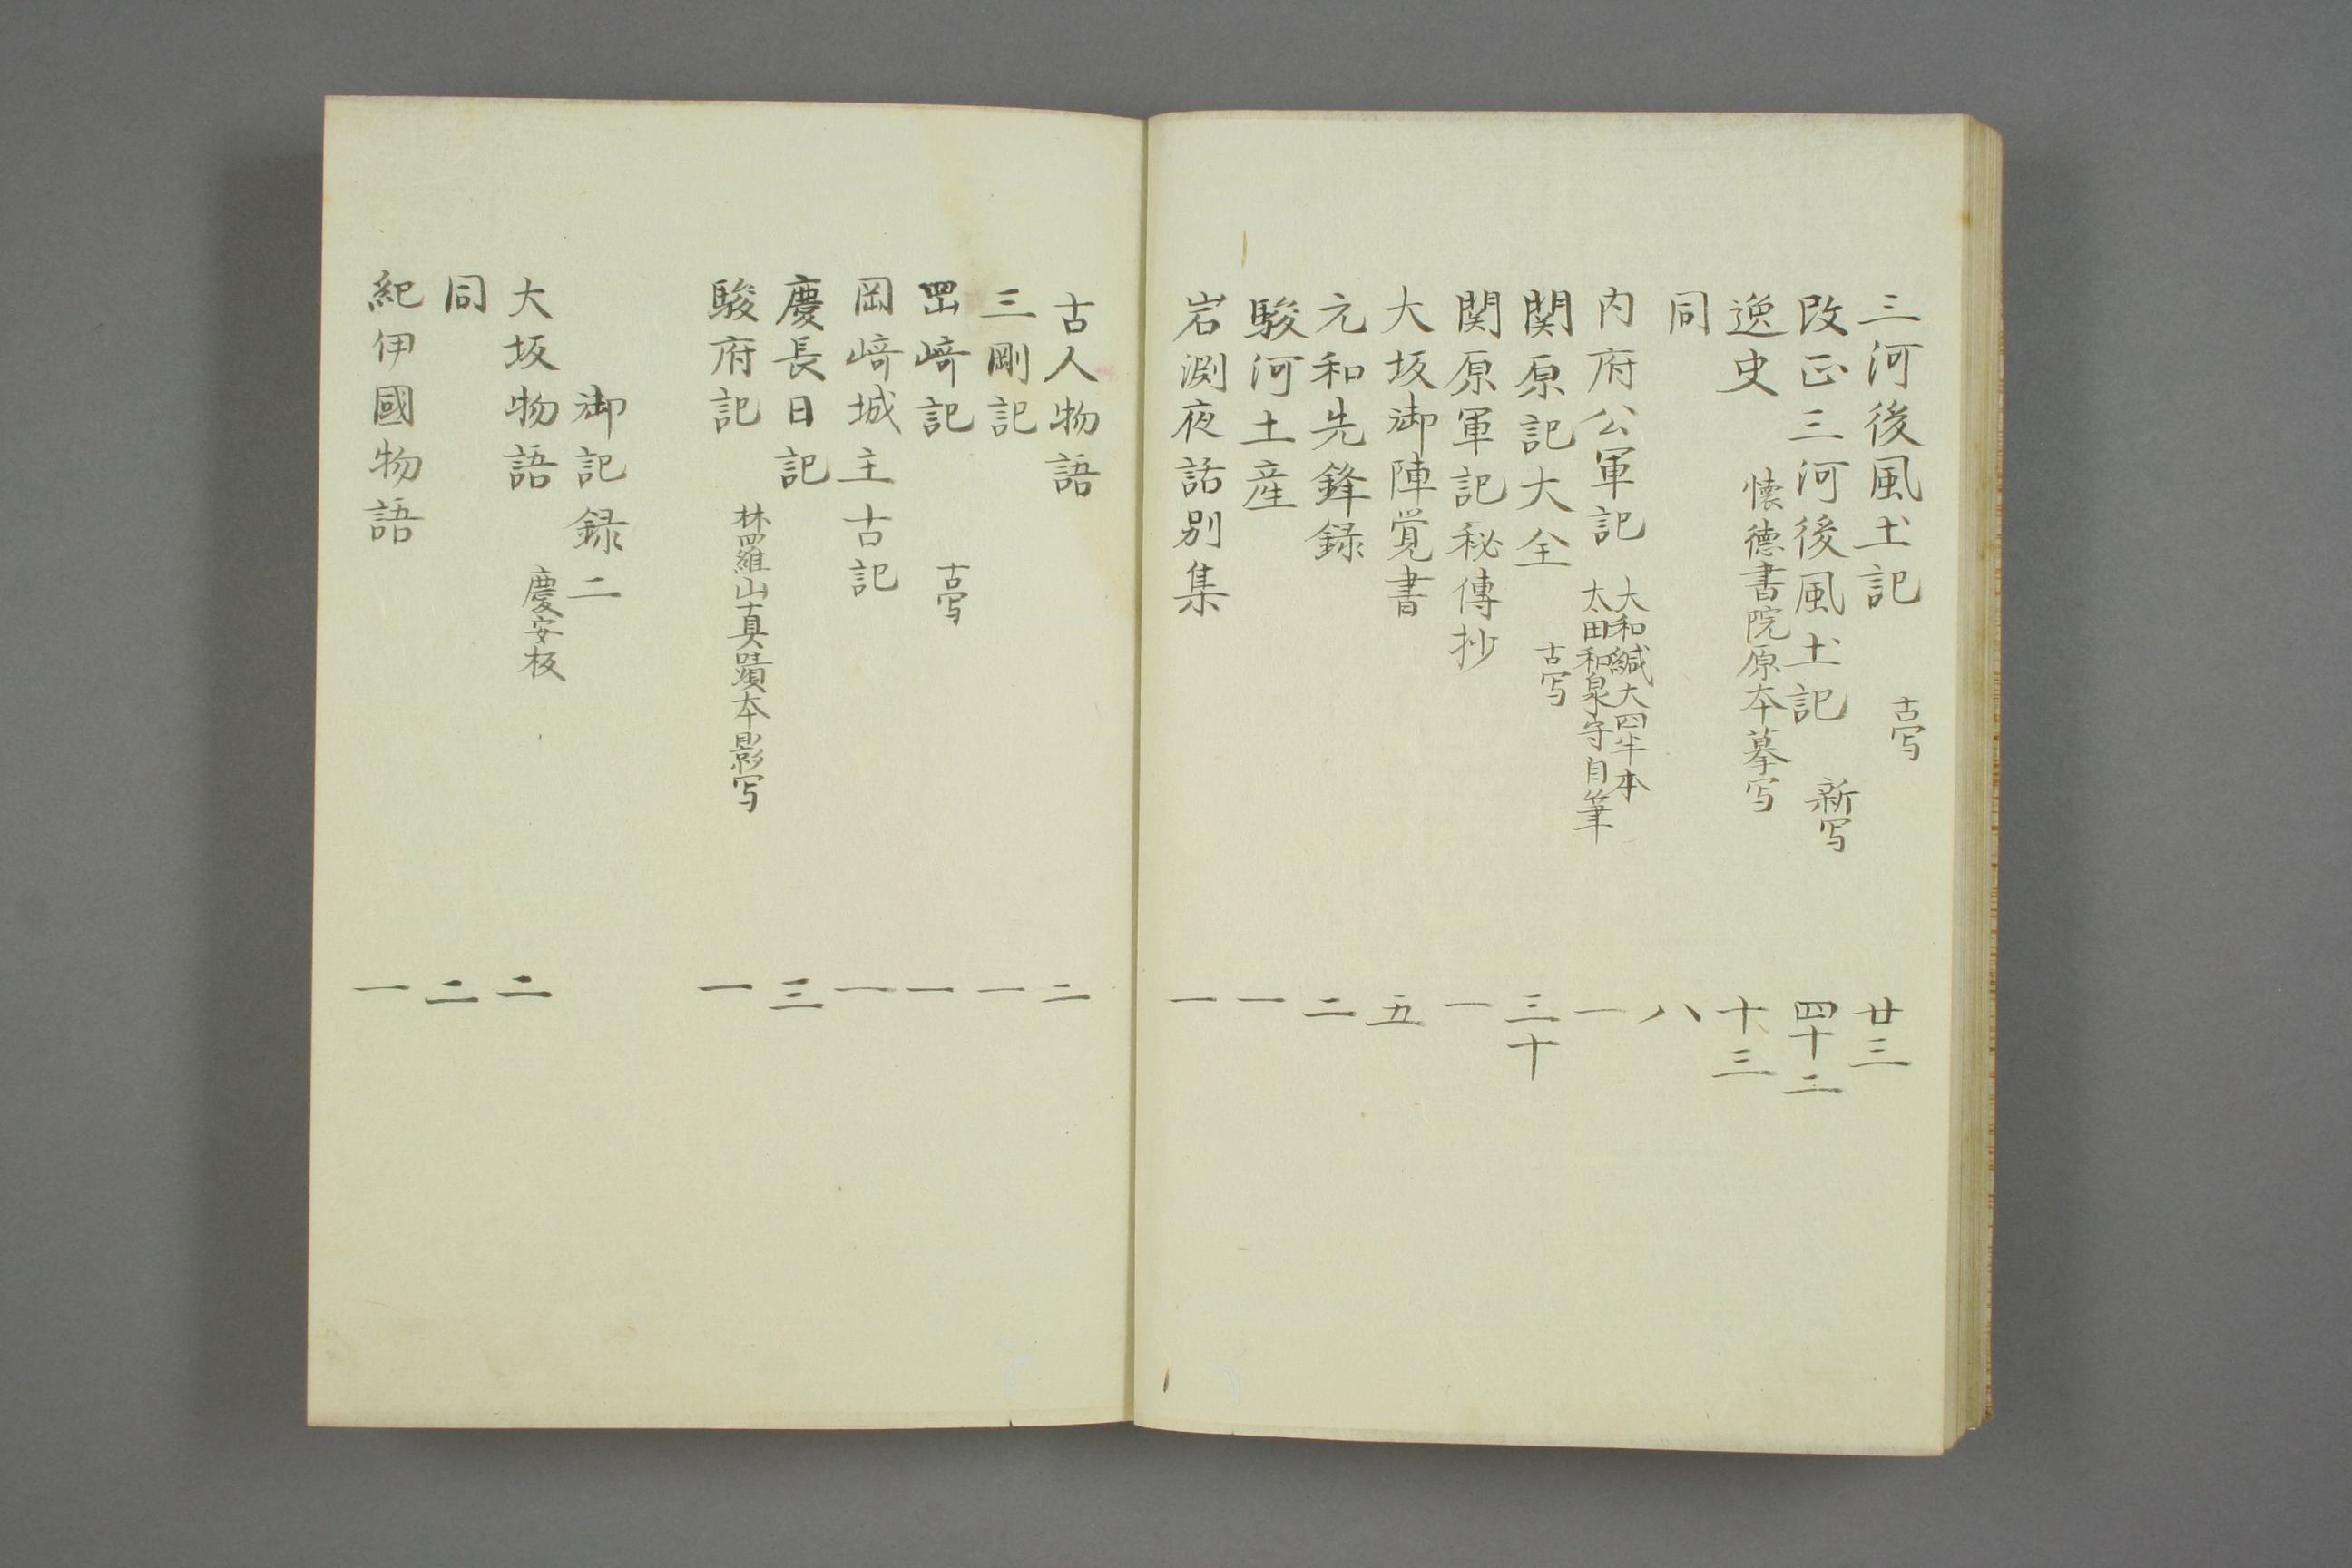 三河後風土記 古写 廿三
改正三河後風土記 新写 四十二
逸史 懐德書院原本摹写 十三
同 八
内府公軍記 大和綴大四半本 太田和泉守自筆 一
関原記大全 古写 三十
関原軍記秘傳抄 一
大坂御陣覚書 五
元和先鋒録 二
駿河土産 一
岩渕夜話別集 一
古人物語 二
三剛記 一
岡﨑記 古写 一
岡﨑城主古記 一
慶長日記 三
駿府記 林羅山真蹟本影写 一
御記録二
大坂物語 慶安板 二
同 二
紀伊國物語 一